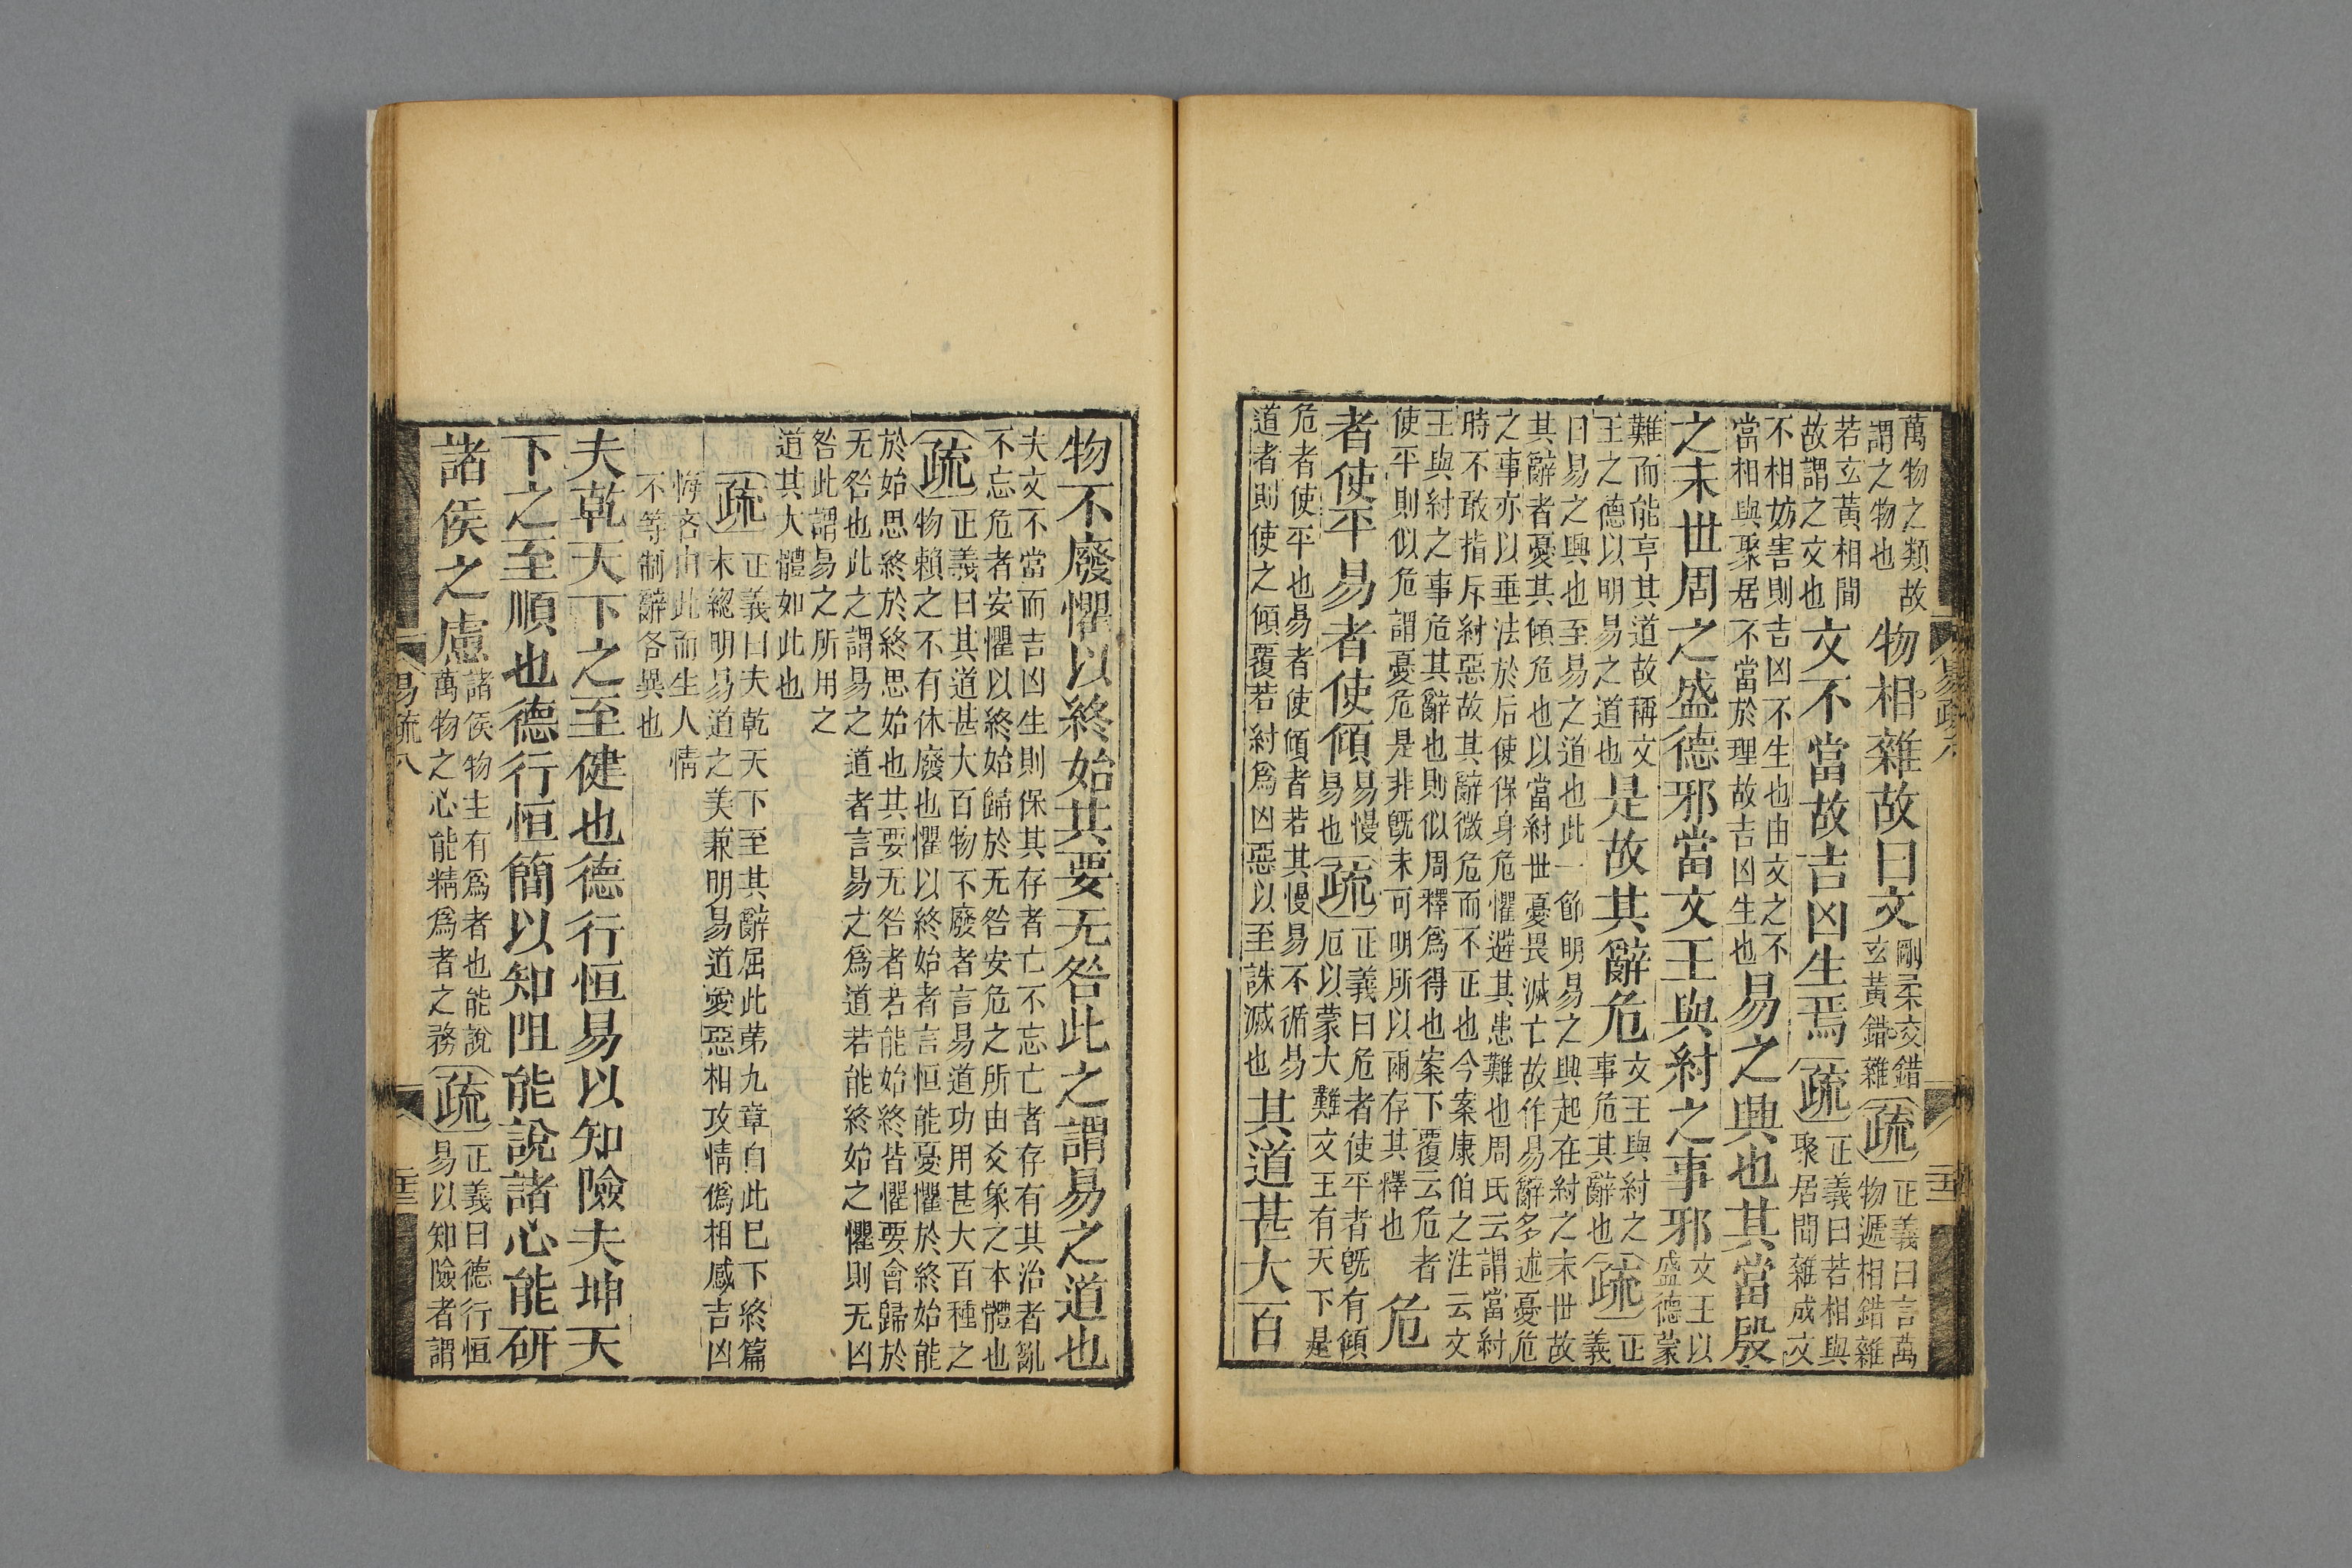 萬物之類故
謂之物也
物相雜故曰文
剛柔交錯
玄黃錯雜
疏
正義曰言萬
物遞相錯雜
若玄黃相間
故謂之文也
文不當故吉凶生焉
疏
正義曰若相與
聚居間雜成文
不相妨害則吉凶不生也由文之不
當相與聚居不當於理故吉凶生也
易之興也其當殷
之末世周之盛德邪當文王與紂之事邪
文王以
盛德蒙
難而能亨其道故稱文
王之德以明易之道也
是故其辭危
文王與紂之
事危其辭也
疏
正
義
曰易之興也至易之道也此一節明易之興起在紂之末世故
其辭者憂其傾危也以當紂世憂畏滅亡故作易辭多述憂危
之事亦以垂法於后使保身危懼避其患難也周氏云謂當紂
時不敢指斥紂惡故其辭微危而不正也今案康伯之注云文
王與紂之事危其辭也則似周釋爲得也案下覆云危者
使平則似危謂憂危是非旣未可明所以兩存其釋也
危
者使平易者使傾
易慢
易也
疏
正義曰危者使平者旣有傾
厄以蒙大難文王有天下是
危者使平也易者使傾者若其慢易不循易
道者則使之傾覆若紂爲凶惡以至誅滅也
其道甚大百
物不廢懼以終始其要无咎此之謂易之道也
夫文不當而吉凶生則保其存者亡不忘亡者存有其治者亂
不忘危者安懼以終始歸於无咎安危之所由爻象之本體也
疏
正義曰其道甚大百物不廢者言易道功用甚大百種之
物賴之不有休廢也懼以終始者言恒能憂懼於終始能
於始思終於終思始也其要无咎者若能始終皆懼要會歸於
无咎也此之謂易之道者言易之爲道若能終始之懼則无凶
咎此謂易之所用之
道其大體如此也
疏
正義曰夫乾天下至其辭屈此第九章自此已下終篇
末緫明易道之美兼明易道愛惡相攻情僞相感吉凶
悔吝由此而生人情
不等制辭各異也
夫乾天下之至健也德行恒易以知險夫坤天
下之至順也德行恒簡以知阻能說諸心能研
諸侯之慮
諸侯物主有爲者也能說
萬物之心能精爲者之務
疏
正義曰德行恒
易以知險者謂
易疏八